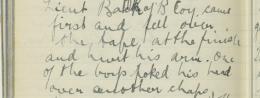 Lieut Bath of B Coy came
first and fell over
the tape, at the finish
and hurt his arm. One
of the boys poked his head
over another chap